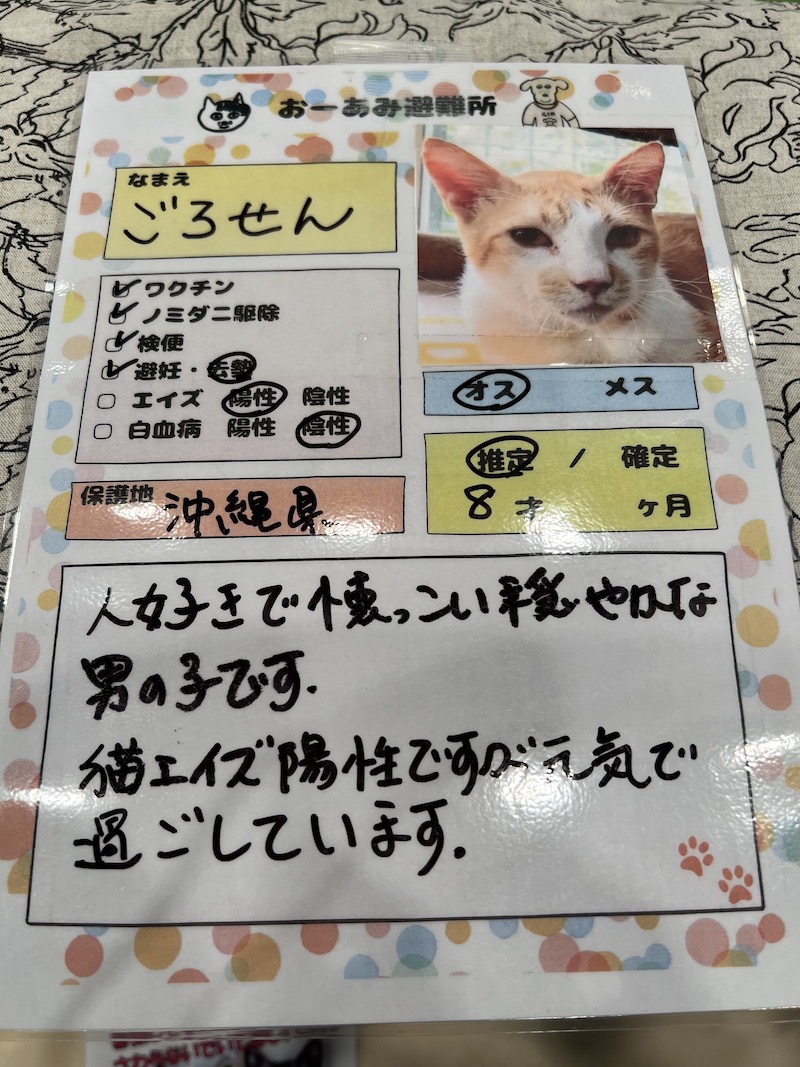 おーあみ避難所
なまえ
ごろせん
ワクチン
ノミダニ駆除
検便
避妊・去勢
エイズ 陽性 陰性
白血病 陽性 陰性
オス メス
推定 / 確定
8才 ヶ月
保護地 沖縄県
人好きで懐っこい穏やかな
男の子です.
猫エイズ陽性ですが元気で
過ごしています.